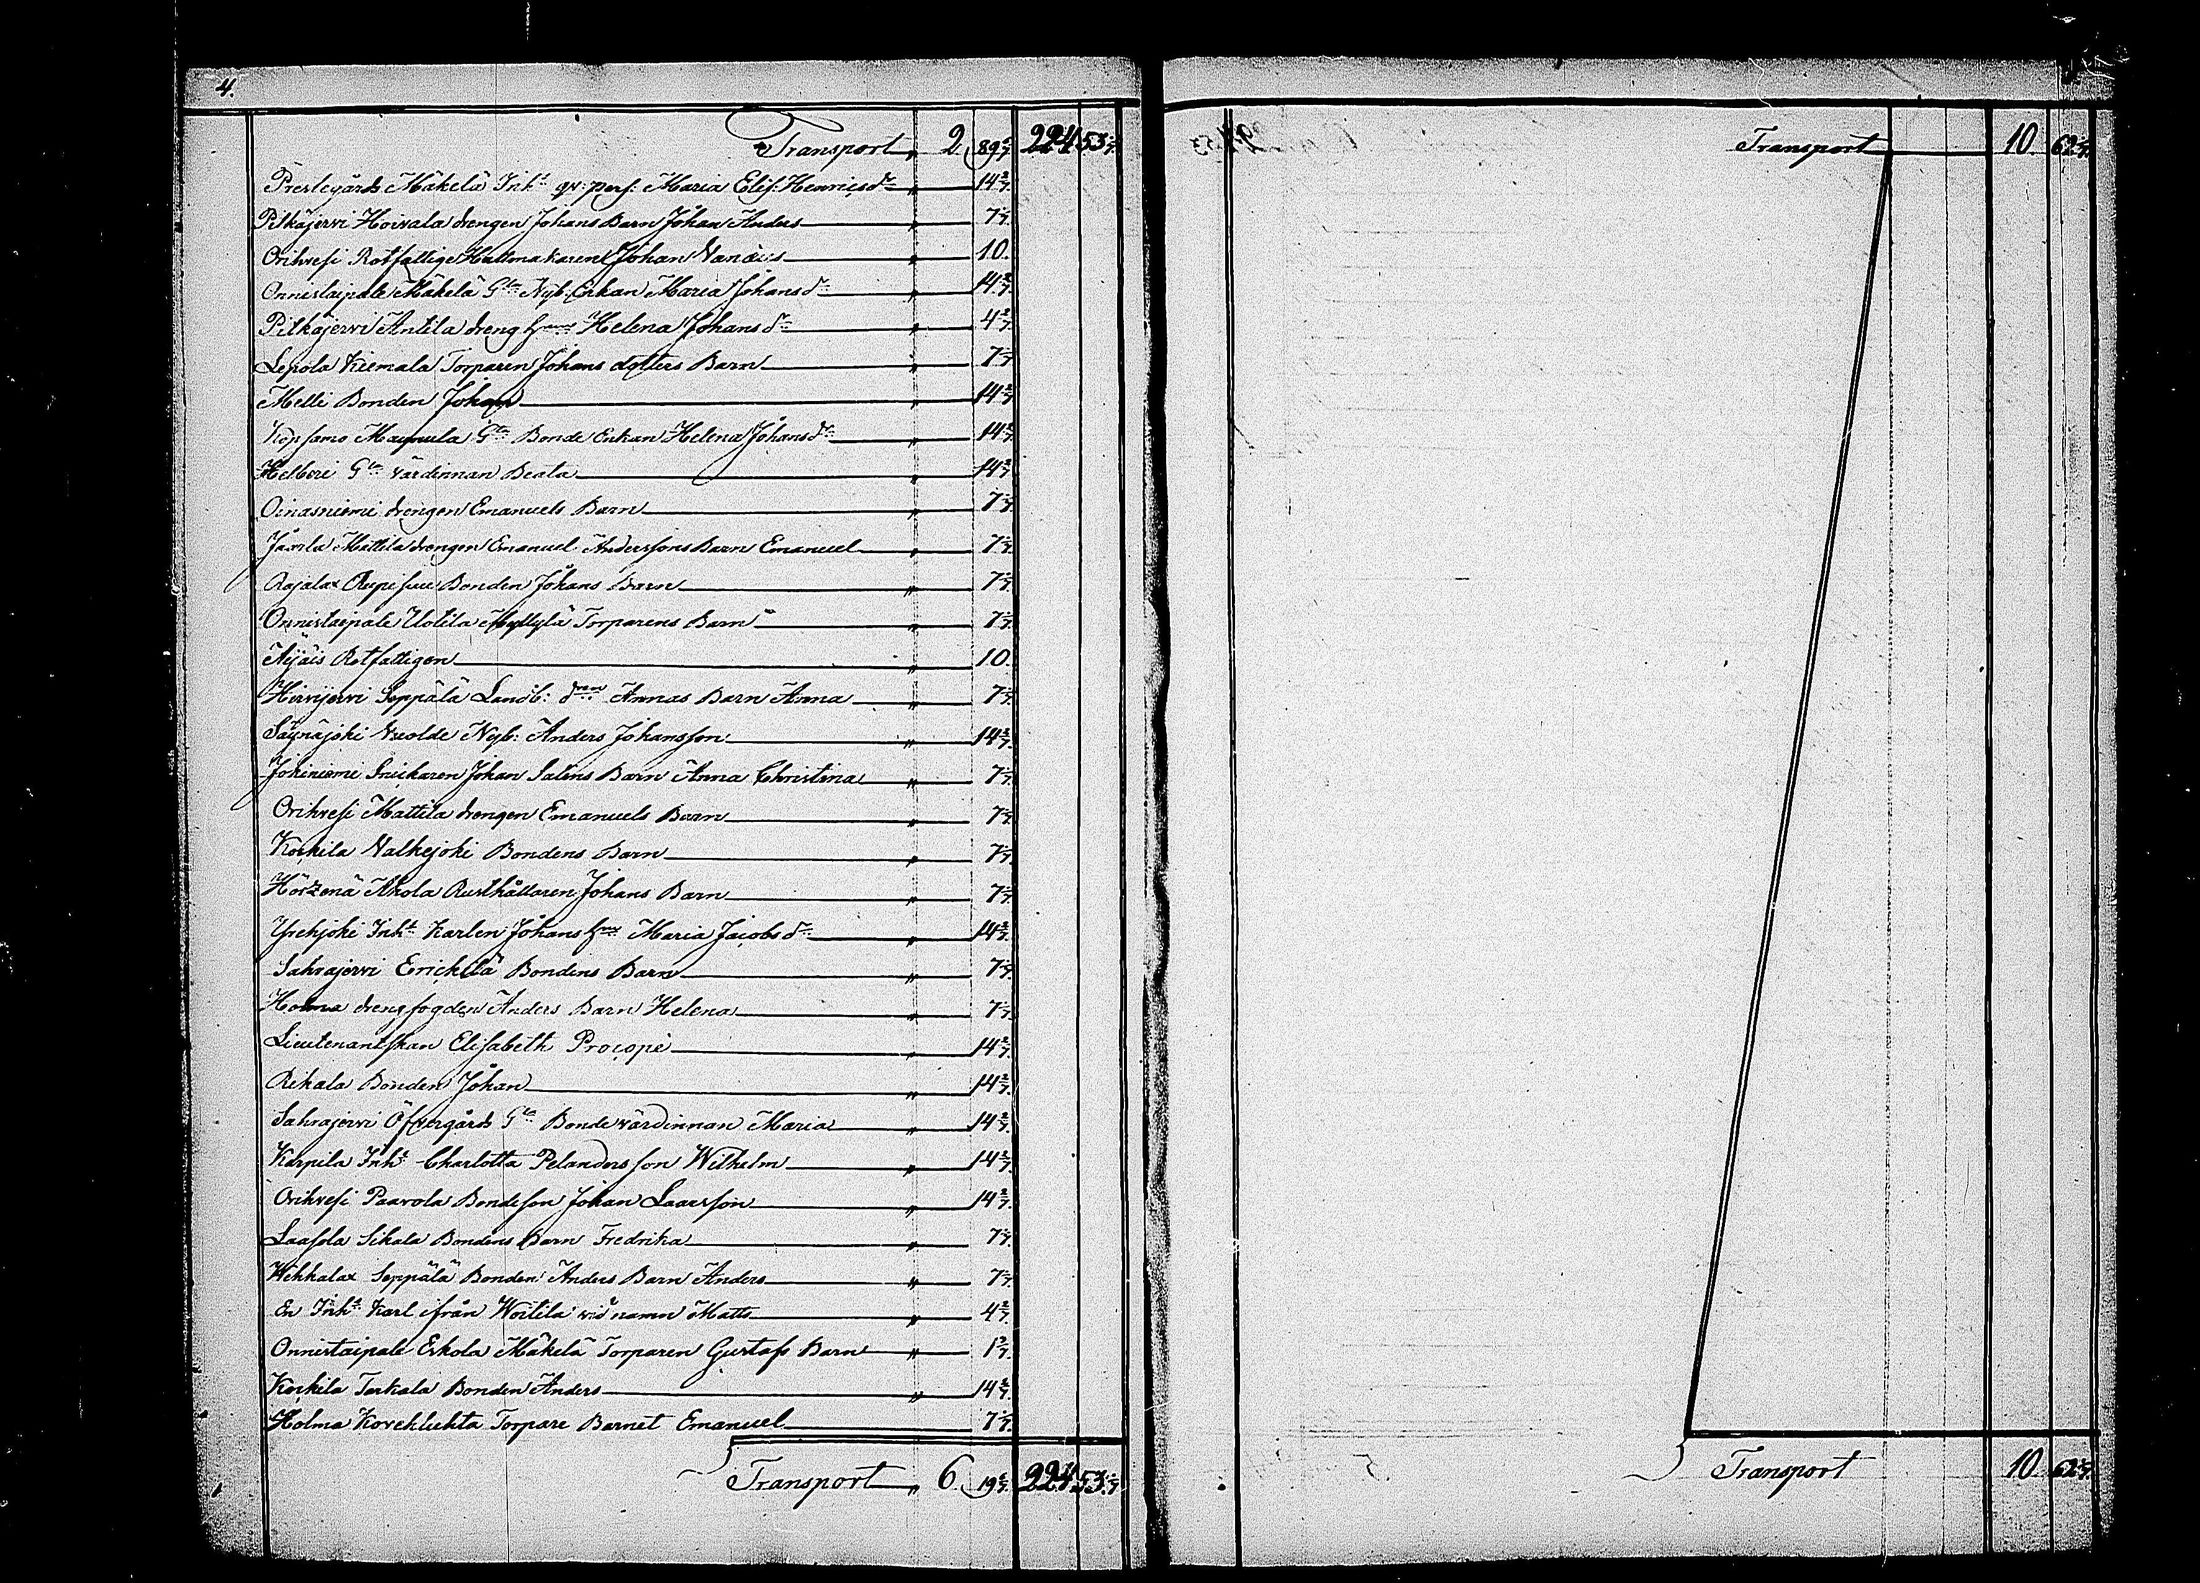 4.
Transport „ 2 89 6/7. 224 53 1/7.
Prestegårds Mäkelä Inh:s qv: pers: Maria Elis: Henricsd:r „ 14 2/7.
Pitkäjerwi Hoivala drengen Johans Barn Johan Anders „ 7 1/7.
Orihvesi Rotfattige Hattmakaren Johan Vanæus „ 10.
Onnistaipale Mäkelä G:la Nyb: Enkan Maria Johansd:r „ 14 2/7.
Pitkäjerwi Antila dreng Helena Johans d:r „ 4 2/7.
Lepola Kiemala Torparen Johans dotters Barn „ 7 1/7.
Melli Bonden Johan „ 14 2/7.
Köpsamo Maunula G:la Bonde Enkan Helena Johansd:r „ 14 2/7.
G:la Värdinnan Beata „ 14 2/7.
Oinasniemi drengen Emanuels Barn „ 7 1/7.
Mattila drengen Emanuel Anderssons Barn Emanuel „ 7 1/7.
Bonden Johans Barn „ 7 1/7.
Onnistaipale Uotila Myllylä Torparens Barn „ 7 1/7.
Äijäis Rotfattigen „ 10.
Hirvijervi Seppälä Landb: Annas Barn Anna „ 7 1/7.
Säynäjoki Nyb: Anders Johansson „ 14 2/7.
Jokiniemi Snickaren Johan Salins Barn Anna Christina „ 7 1/7.
Orihvesi Mattila drengen Emanuels Barn „ 7 1/7.
Korkila Valkejoki Bondens Barn „ 7 1/7.
Akola Rusthållaren Johans Barn „ 7 1/7.
Inh:s Karlen Johans Maria Jacobsd:r „ 14 2/7.
Sahrajervi Erickilä Bondens Barn „ 7 1/7.
Holma drengfogden Anders Barn Helena „ 7 1/7.
Lieutenantskan Elisabeth Procopé „ 14 2/7.
Rekala Bonden Johan „ 14 2/7.
Sahrajervi Öfvergårds G:la Bondevärdinnan Maria „ 14 2/7.
Karpila Inh:s Charlotta Pelanders son Wilhelm „ 14 2/7.
Orihvesi Paavola Bondeson Johan Laarsson „ 14 2/7.
Laasola Sikala Bondens Barn Fredrika „ 7 1/7.
Wehkalax Seppälä Bonden Anders Barn Anders „ 7 1/7.
En Inh:s Karl ifrån Woitila vid namn Matts „ 4 2/7.
Onnistaipale Eskola Mäkelä Torparen Gustafs Barn „ 1 3/7.
Korkila Tarkala Bonden Anders „ 14 2/7.
Holma Korehluhta Torpare Barnet Emanuel 7 1/7.
Transport „ 6. 19 6/7. 224 53 1/7.
Transport 10. 62 6/7.
Transport 10 62 6/7.